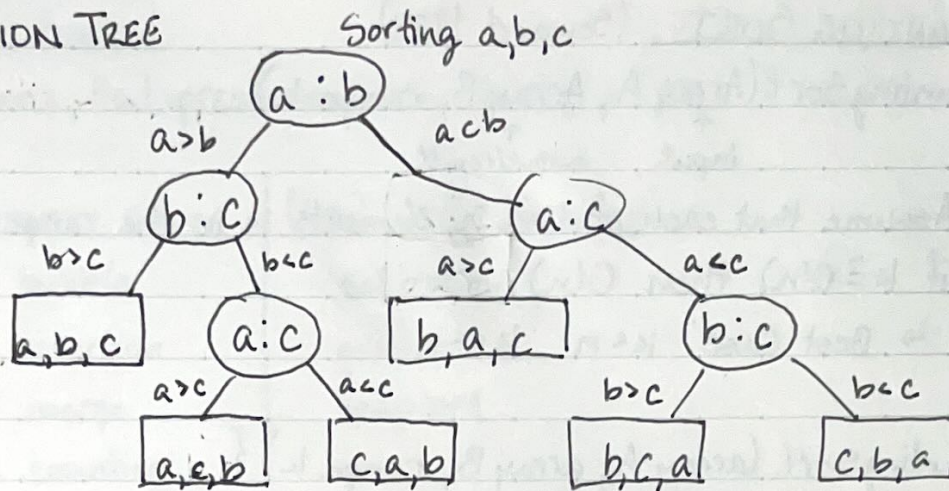 ION TREE Sorting a,b,c
a : b
a>b a<b
b : c a : c
b>c b<c a>c a<c
a, b, c a : c b, a, c b : c
a>c a<c b>c b<c
a, c, b c, a, b b, c, a c, b, a